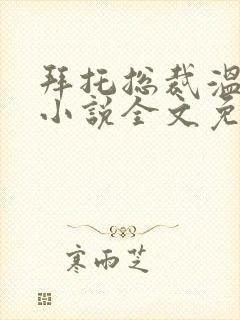 拜托总裁温
小说全文免
寒雨芝